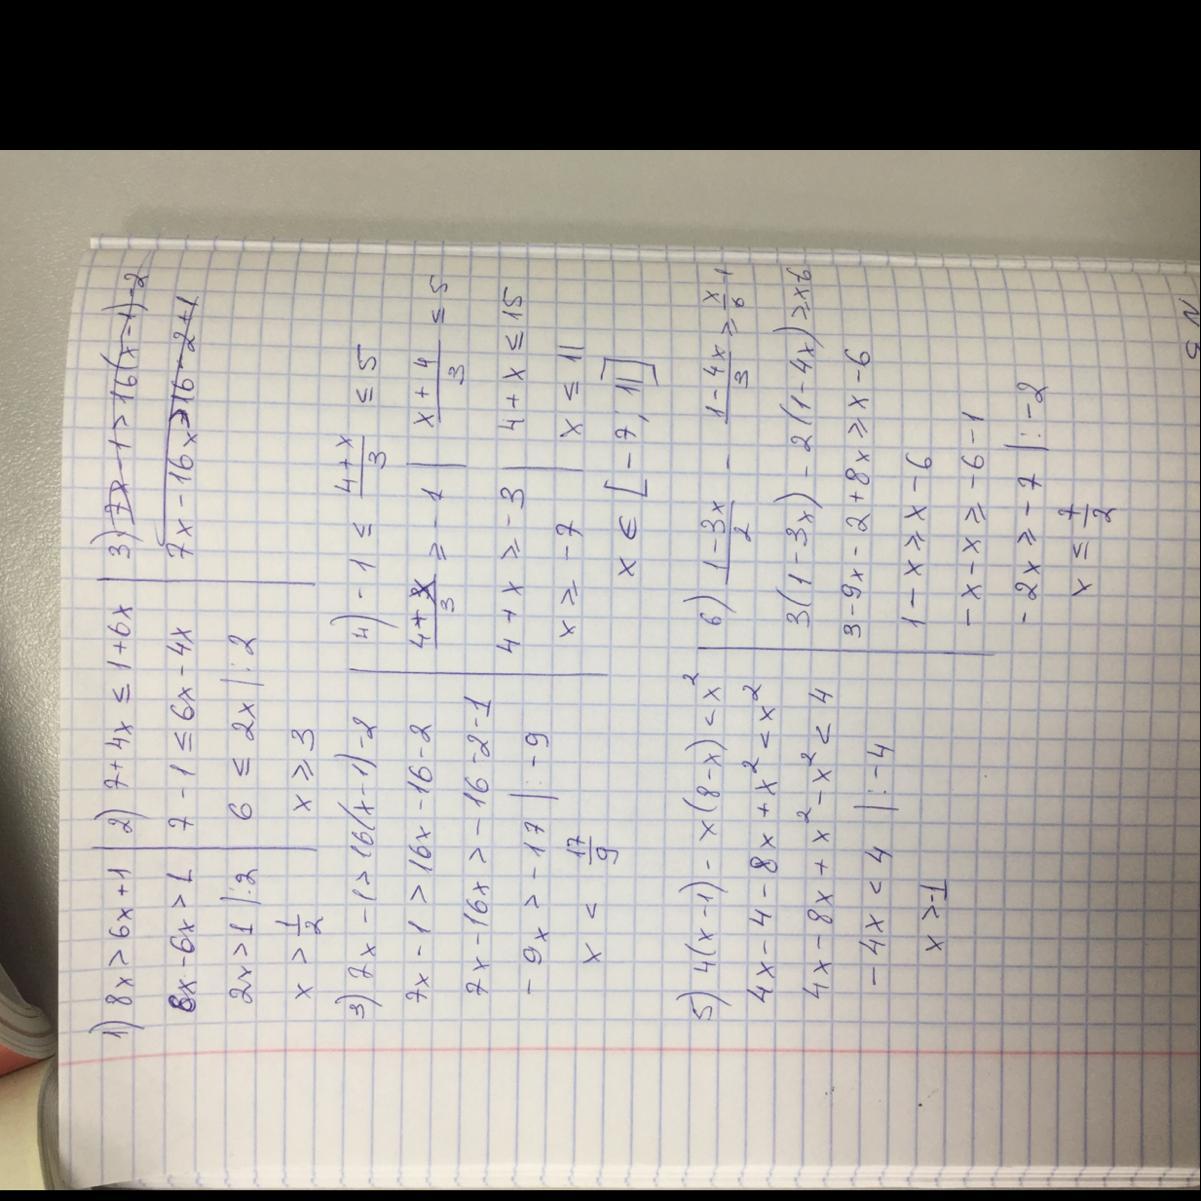 1) 8x > 6x + 1
8x - 6x > 1
2x > 1 |:2
x > 1/2
2) 7 + 4x ≤ 1 + 6x
7 - 1 ≤ 6x - 4x
6 ≤ 2x |:2
x ≥ 3
3) 7x - 1 > 16(x - 1) - 2
7x - 16x > 16 - 2 + 1
3) 7x - 1 > 16(x - 1) - 2
7x - 1 > 16x - 16 - 2
7x - 16x > - 16 - 2 - 1
- 9x > - 17 |: -9
x < 17/9
4) - 1 ≤ (4 + x)/3 ≤ 5
(4 + x)/3 ≥ - 1 | (x + 4)/3 ≤ 5
4 + x ≥ - 3 | 4 + x ≤ 15
x ≥ - 7 | x ≤ 11
x ∈ [-7, 11]
5) 4(x - 1) - x(8 - x) < x²
4x - 4 - 8x + x² < x²
4x - 8x + x² - x² < 4
- 4x < 4 |: -4
x > -1
6) (1 - 3x)/2 - (1 - 4x)/3 ≥ x/6 - 1
3(1 - 3x) - 2(1 - 4x) ≥ x6
3 - 9x - 2 + 8x ≥ x - 6
1 - x ≥ x - 6
- x - x ≥ - 6 - 1
- 2x ≥ - 7 |: -2
x ≤ 7/2
N 5